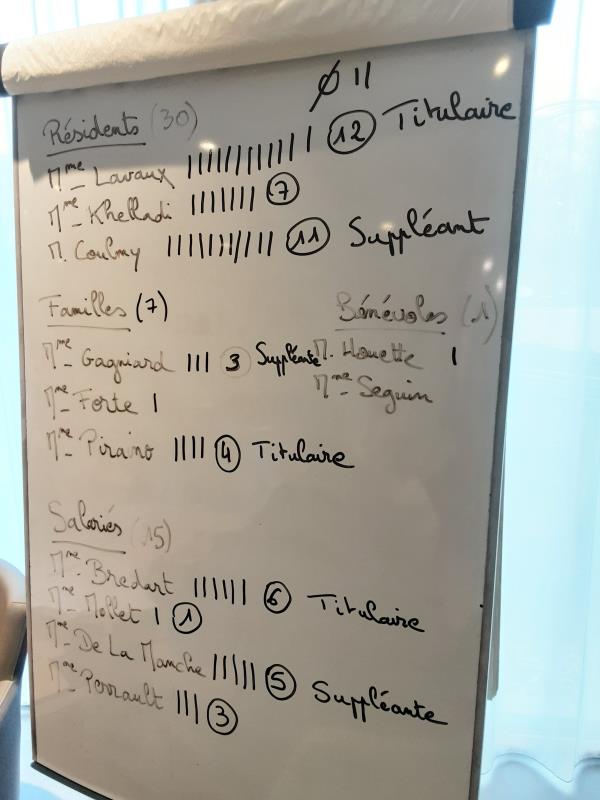 Ø ||
Résidents (30)
Mme Lavaux |||||||||||| 12 Titulaire
Mme Khelladi ||||||| 7
M. Coulmy ||||||||||| 11 Suppléant
Familles (7)
Mme Gagniard ||| 3 Suppléante
Mme Forte |
Mme Piraino |||| 4 Titulaire
Bénévoles (1)
M. Houette |
Mme Seguin
Salariés (15)
Mme Bredart |||||| 6 Titulaire
Mme Mollet | 1
Mme De La Manche ||||| 5 Suppléante
Mme Perrault ||| 3